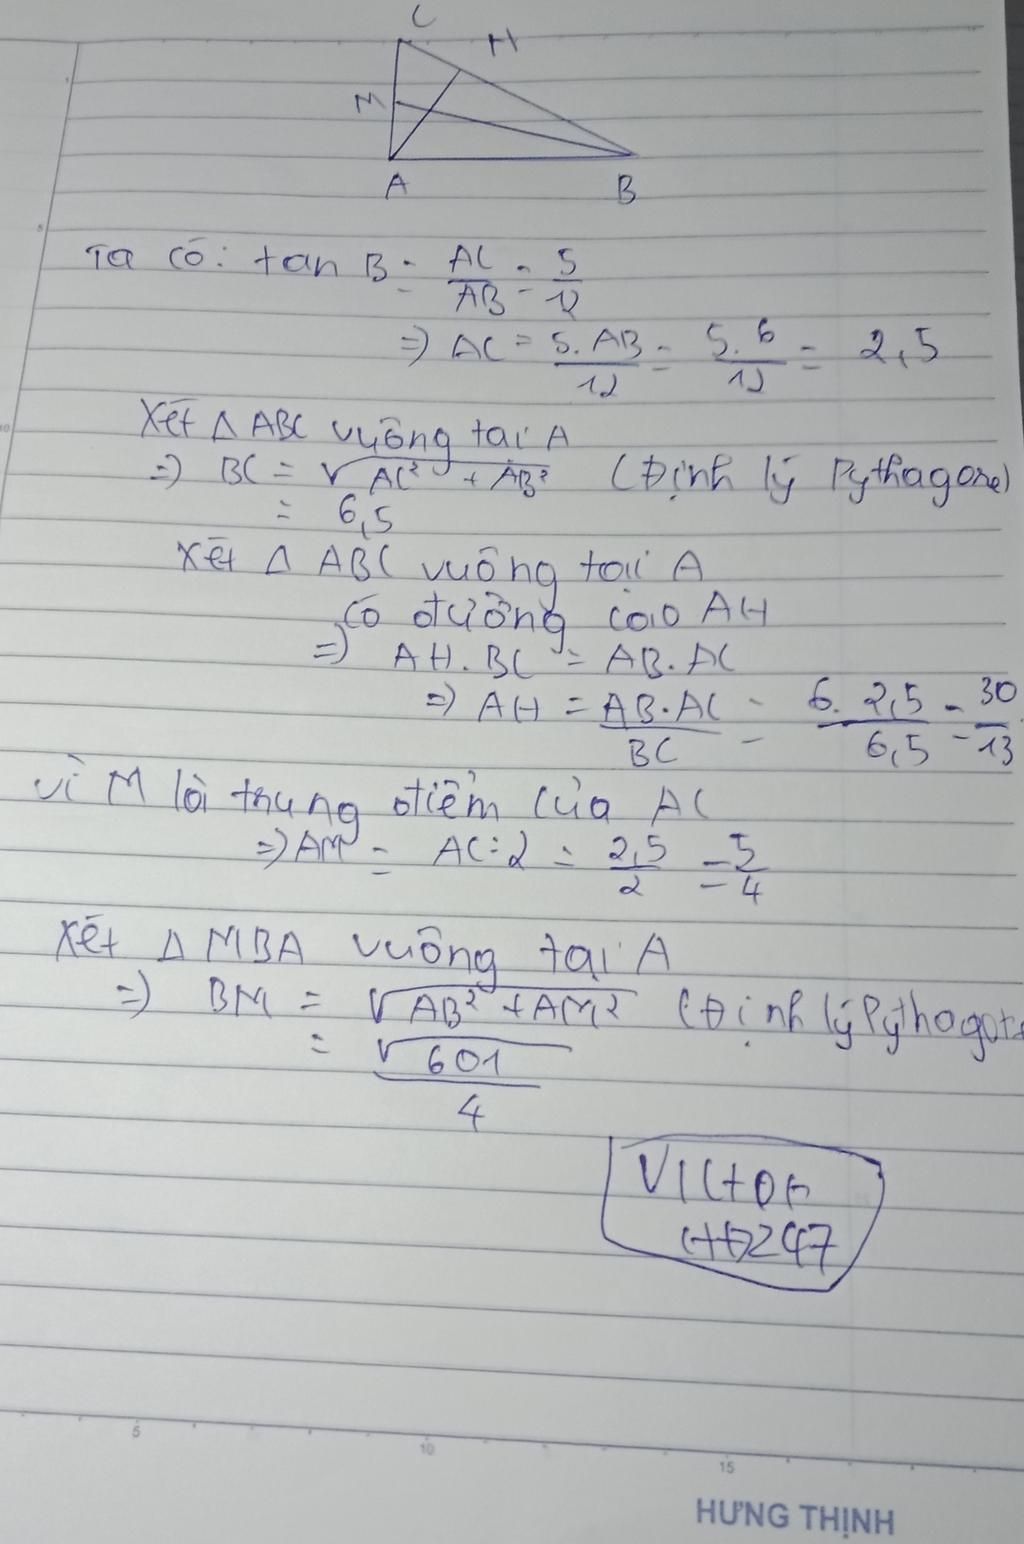 C
H
M
A
B
Ta có: tan B = AC/AB = 5/12
=> AC = 5.AB/12 = 5.6/12 = 2,5
Xét Δ ABC vuông tại A
=> BC = √AC² + AB² (Định lý Pythagore)
= 6,5
Xét Δ ABC vuông tại A
có đường cao AH
=> AH.BC = AB.AC
=> AH = AB.AC/BC = 6.2,5/6,5 = 30/13
Vì M là trung điểm của AC
=> AM = AC:2 = 2,5/2 = 5/4
Xét Δ MBA vuông tại A
=> BM = √AB² + AM² (Định lý Pythagore
= √601/4
VICtOr
247
5
10
15
HƯNG THỊNH